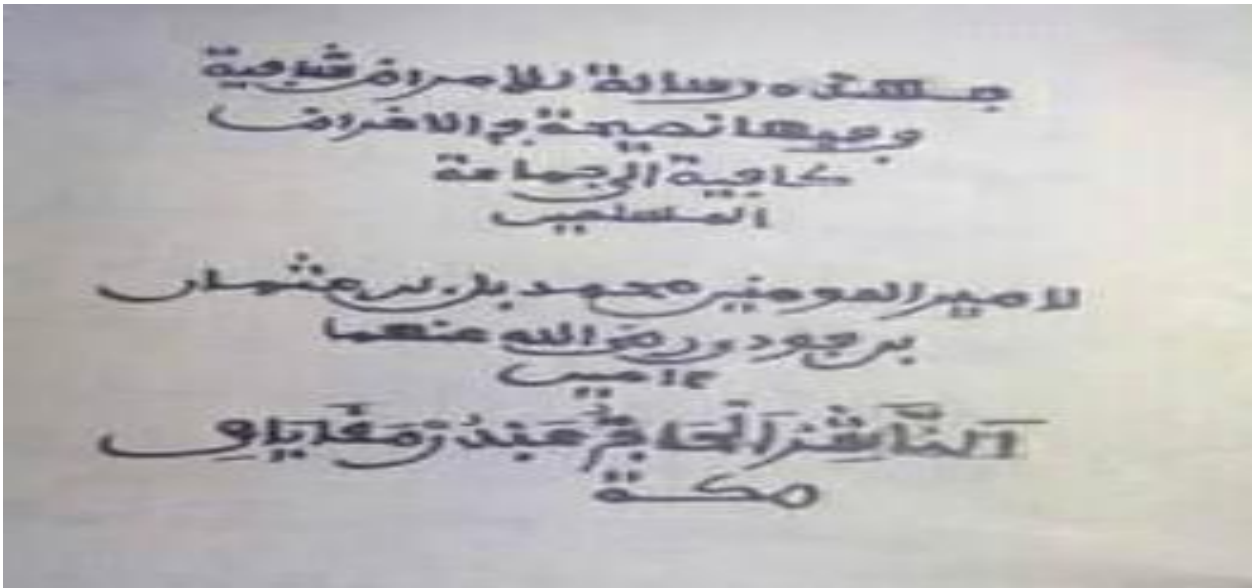 فهذه رسالة للامراض شافية
وفيها نصيحة في الاغراض
كافية الى جماعة
المسلمين
لامير المومنين محمد بل بن عثمان
بن فودي رضى الله عنهما
ءامين
الناشر الحاج
مكة